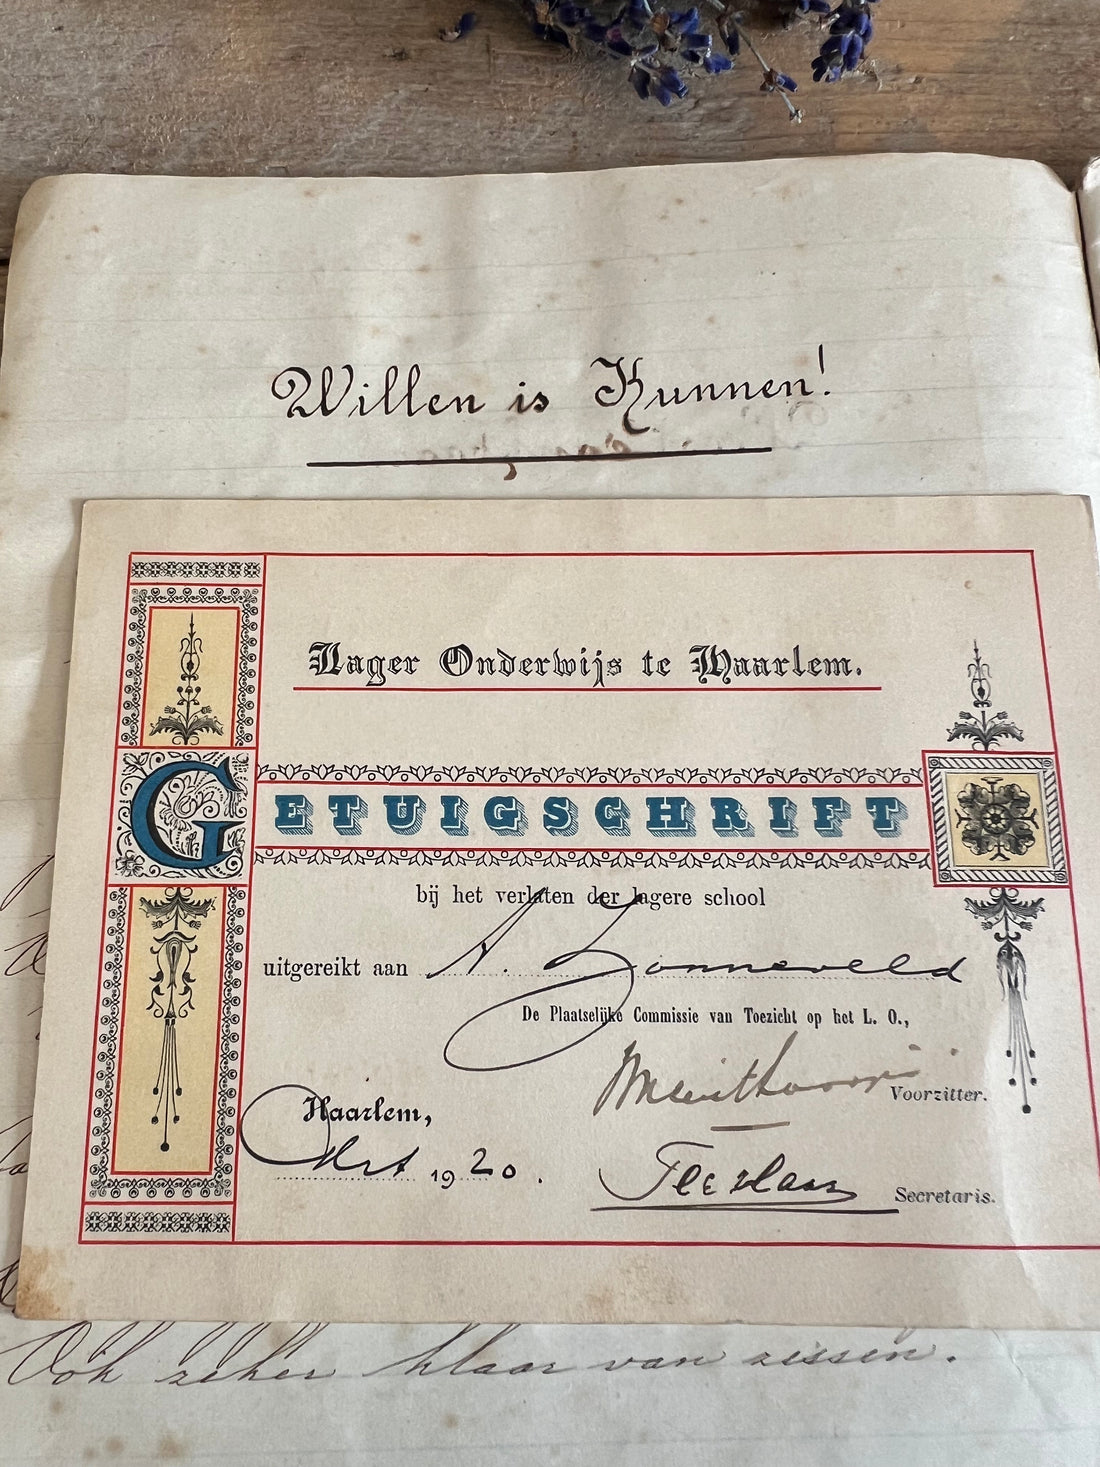 Willen is Kunnen!
Lager Onderwijs te Haarlem.
GETUIGSCHRIFT
bij het verlaten der lagere school
uitgereikt aan A. Zonneveld
De Plaatselijke Commissie van Toezicht op het L. O.,
Voorzitter.
Haarlem,
1920.
Secretaris.
Ook zeker klaar van zissen.